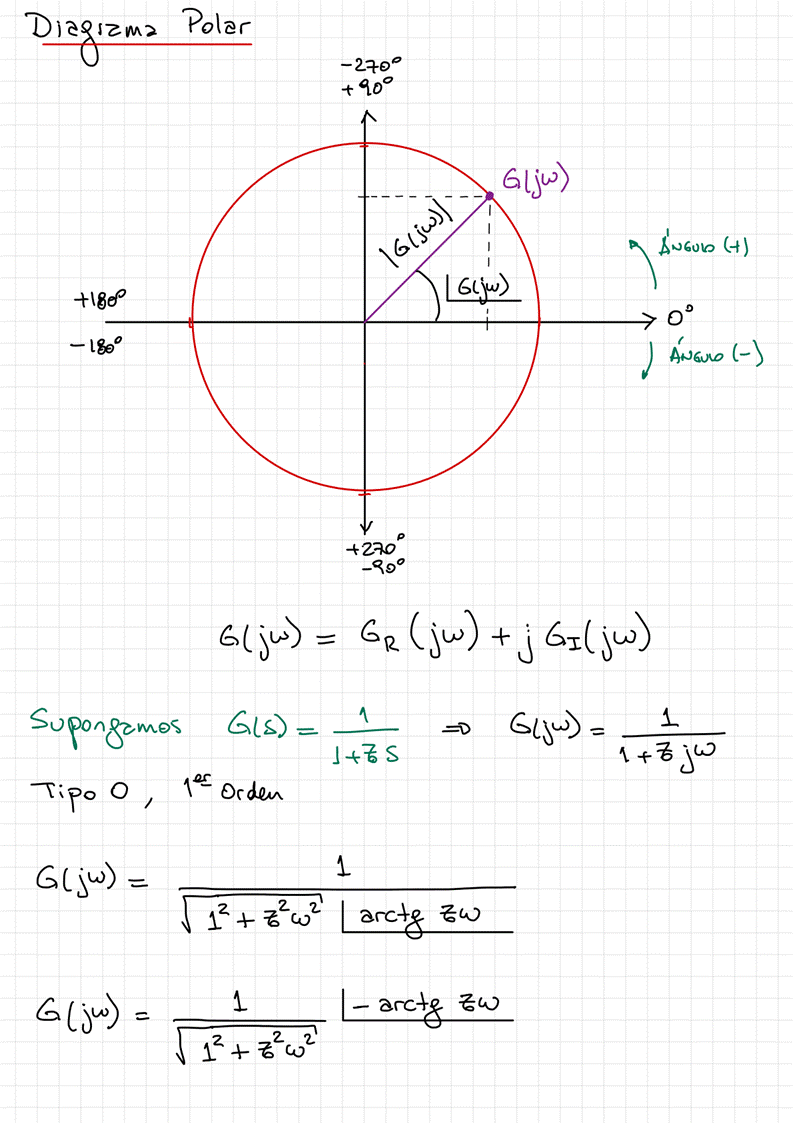 Diagrama Polar
-270°
+90°
G(jω)
|G(jω)|
Ángulo (+)
∠G(jω)
+180°
0°
-180°
Ángulo (-)
+270°
-90°
G(jω) = G_R (jω) + j G_I (jω)
Supongamos G(s) = 1/(1+τs) ⇒ G(jω) = 1/(1+τjω)
Tipo 0, 1er Orden
G(jω) = 1/(√(1² + τ²ω²) ∠arctg τω)
G(jω) = 1/√(1² + τ²ω²) ∠-arctg τω